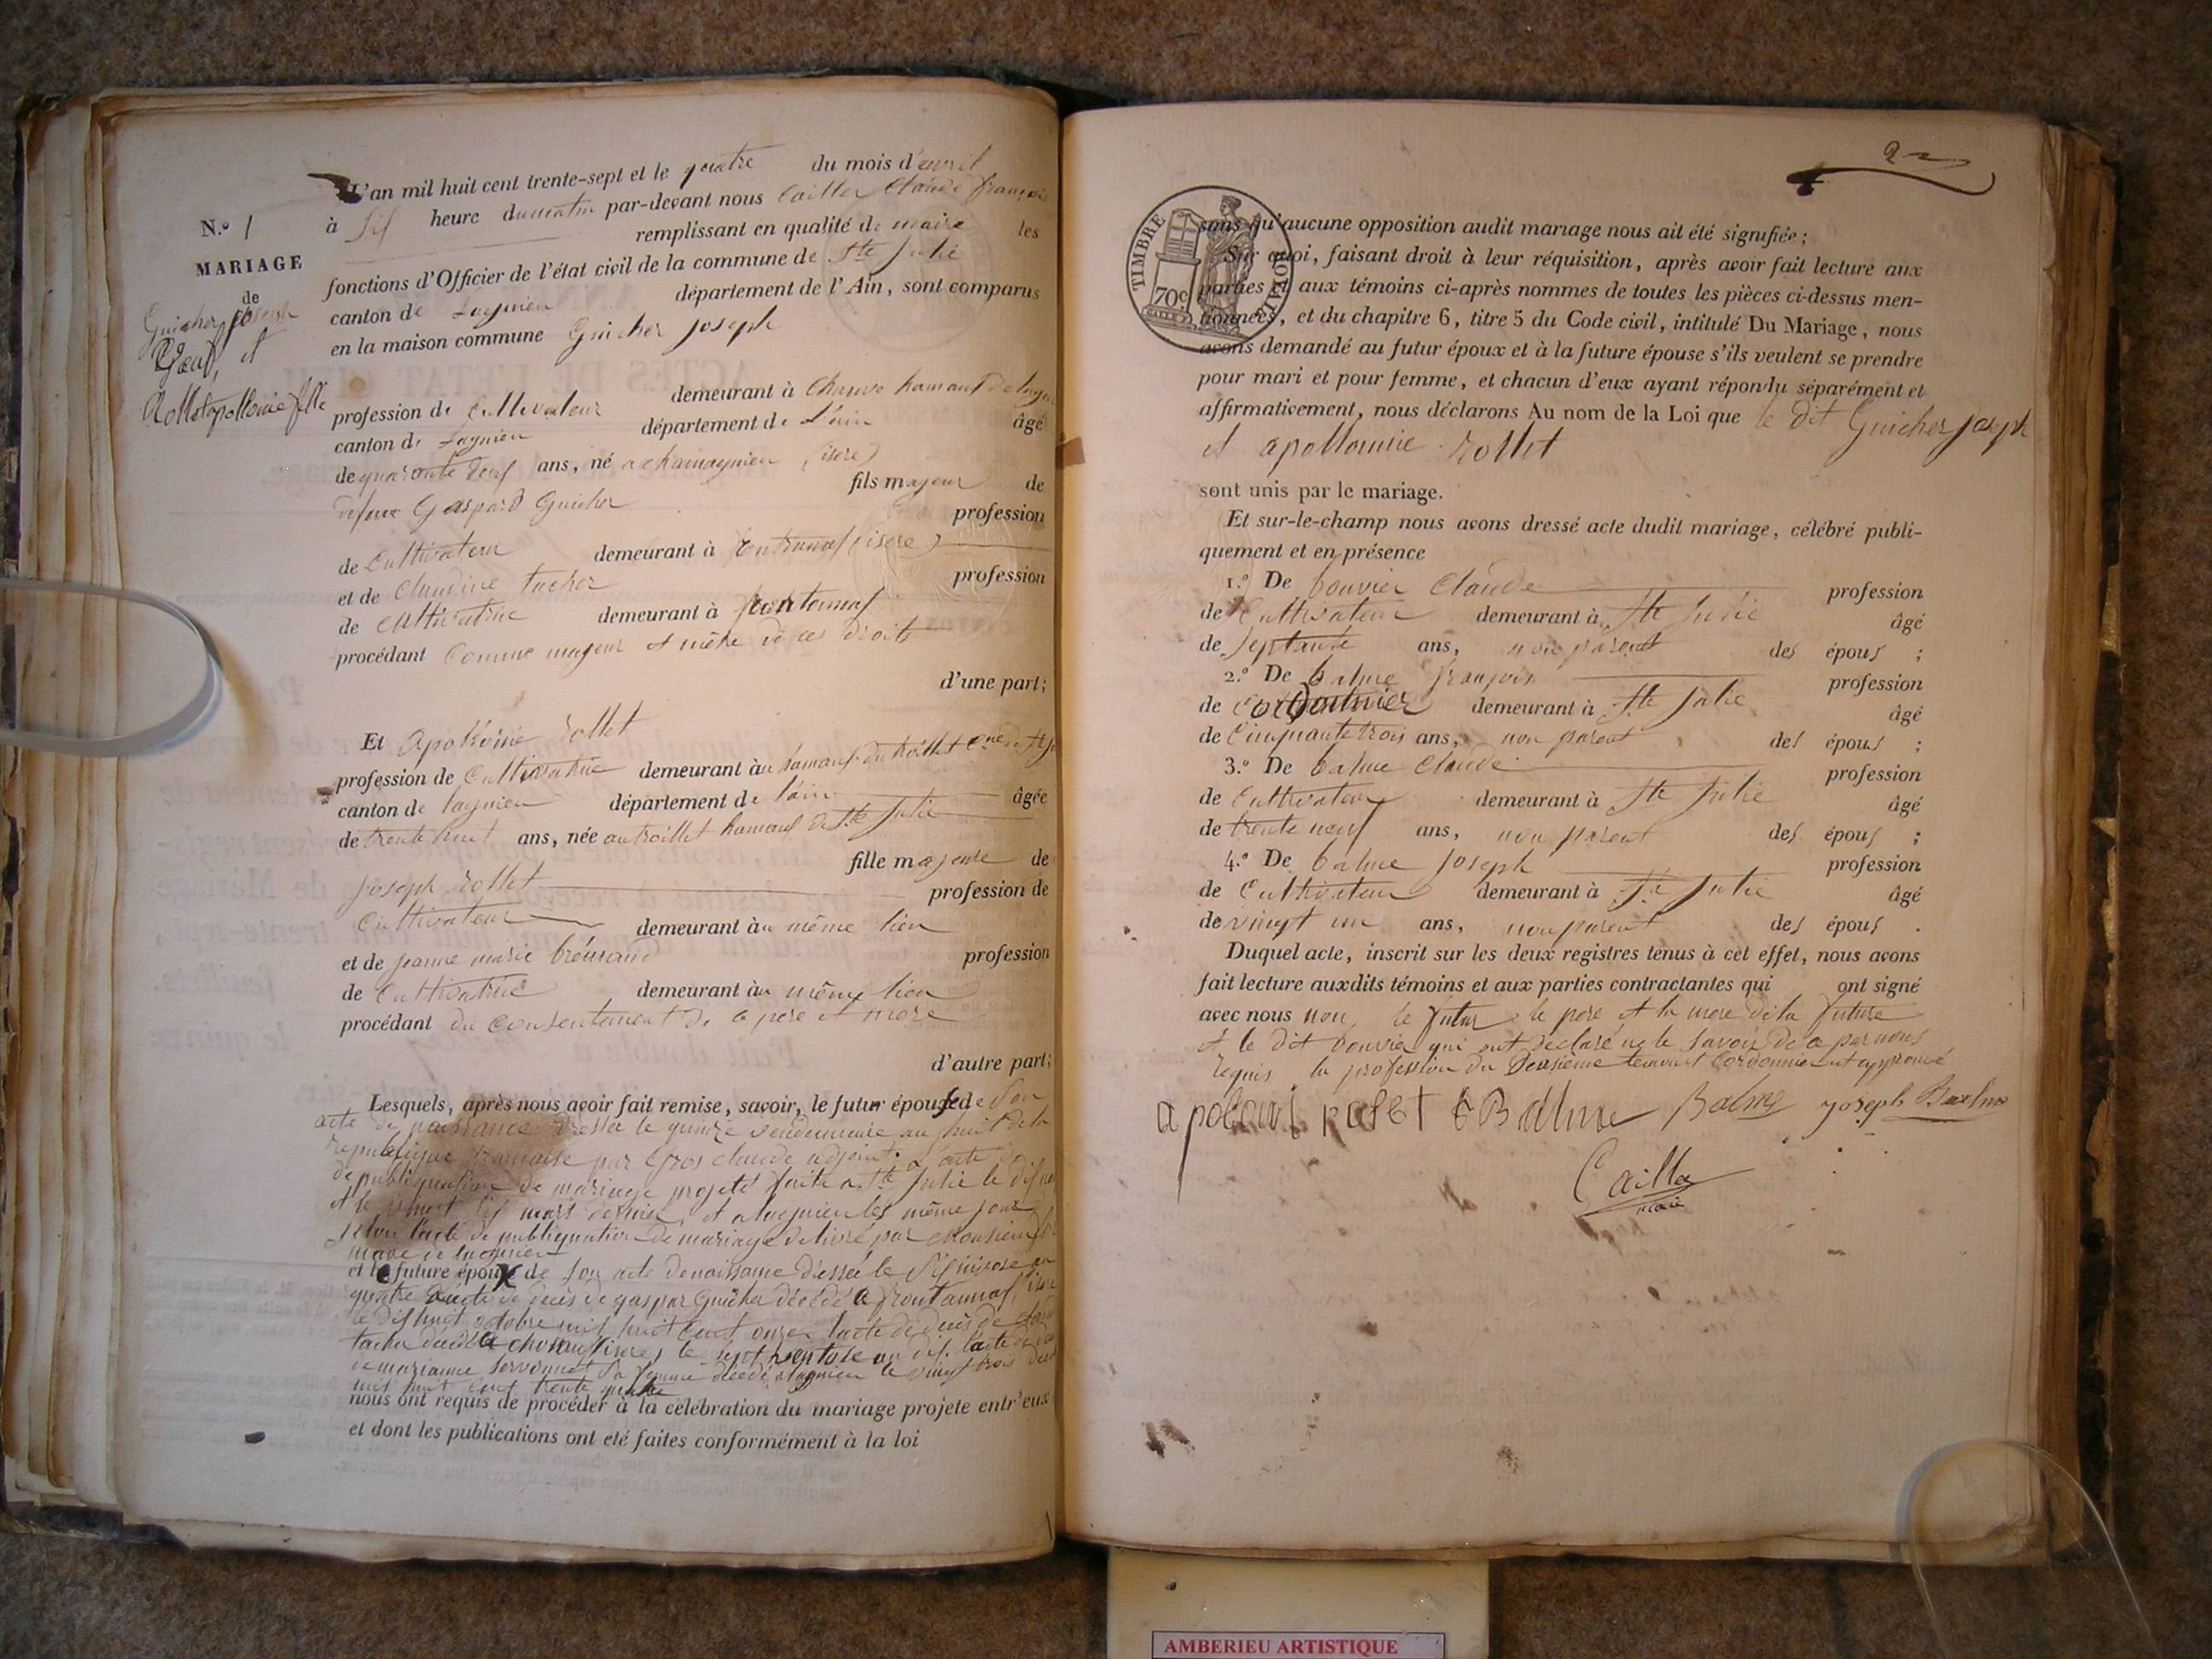 L'an mil huit cent trente-sept et le quatre du mois d'avril
N.º 1
à six heure du matin par-devant nous Cailler Claude françois
remplissant en qualité de maire les
MARIAGE
fonctions d'Officier de l'état civil de la commune de Ste Julie
de
canton de Lagnieu département de l'Ain, sont comparus
Guicher Joseph
en la maison commune Guicher Joseph
Veuf, et
Rollet apollonie fille
demeurant à hamauf de
profession de Cultivateur
canton de Lagnieu département de L'ain âgé
de quarante ans, né a chamagnieu (isere)
fils majeur de
defunt Gaspard Guicher
profession
de Cultivateur demeurant à (isere)
et de Claudine tacher profession
de Cultivatrice demeurant à
procédant Comme majeur et mètre de ces droits
d'une part;
Et Apollonie rollet
profession de Cultivatrice demeurant àu hamauf du trollliet Cne de Ste
canton de lagnieu département de l'ain âgée
de trente huit ans, née au trolliet hamauf de Ste Julie
fille majeure de
Joseph rollet
profession de
Cultivateur demeurant àu même lieu
et de jeanne marie profession
de Cultivatrice demeurant àu même lieu
procédant du Consentement de a pere et mere
d'autre part;
Lesquels, après nous avoir fait remise, savoir, le futur épouse de Son
acte de naissance dressée le quinze vendemiaire an huit de la
republique francaise par Gros claude adjoint. L'acte
de publiquation de mariage projeté faite a Ste Julie le dif neuf
et le vingt sif mars dernier, et a lagnieu les même jour
selon l'acte de publiquation de mariage délivré par Monsieur le
maire de lagnieu
et le future épouse de son acte de naissance dressée le nivose an
quatre l'acte de decès de gaspar Guicher décédé a frontannaf (isere
le dif huit octobre mil huit Cent onze l'acte de decès de
tacher decédé a (isere) le sept ventose an dif. l'acte de
de marianne Servonnat Sa femme décédé a lagnieu le vingt trois
mil huit Cent trente quatre
nous ont requis de procéder à la célébration du mariage projeté entr'eux
et dont les publications ont été faites conformément à la loi
2
TIMBRE ROYAL
70c
sans qu'aucune opposition audit mariage nous ait été signifiée;
Sur quoi, faisant droit à leur réquisition, après avoir fait lecture aux
parties et aux témoins ci-après nommes de toutes les pièces ci-dessus men-
tionnées, et du chapitre 6, titre 5 du Code civil, intitulé Du Mariage, nous
avons demandé au futur époux et à la future épouse s'ils veulent se prendre
pour mari et pour femme, et chacun d'eux ayant répondu séparément et
affirmativement, nous déclarons Au nom de la Loi que le dit Guicher joseph
et apollonnie rollet
sont unis par le mariage.
Et sur-le-champ nous avons dressé acte dudit mariage, célébré publi-
quement et en présence
1.º De bouvier Claude profession
de Cultivateur demeurant à Ste Julie âgé
de septante ans, non parent des épous ;
2.º De balme françois profession
de Cordonnier demeurant à Ste Julie âgé
de Cinquante trois ans, non parent des épous ;
3.º De balme Claude profession
de Cultivateur demeurant à Ste Julie âgé
de trente neuf ans, non parent des épous ;
4.º De balme joseph profession
de Cultivateur demeurant à Ste Julie âgé
de vingt un ans, non parent des épous .
Duquel acte, inscrit sur les deux registres tenus à cet effet, nous avons
fait lecture auxdits témoins et aux parties contractantes qui ont signé
avec nous non le futur le pere et la mere de la future
et le dit bouvier qui ont déclaré ne le savoir de a par nous
requis la profession du Deusième temoin Cordonnier est approuvé
apoloni rolet C Balme Balme joseph Baalme
Cailler
maire
AMBERIEU ARTISTIQUE